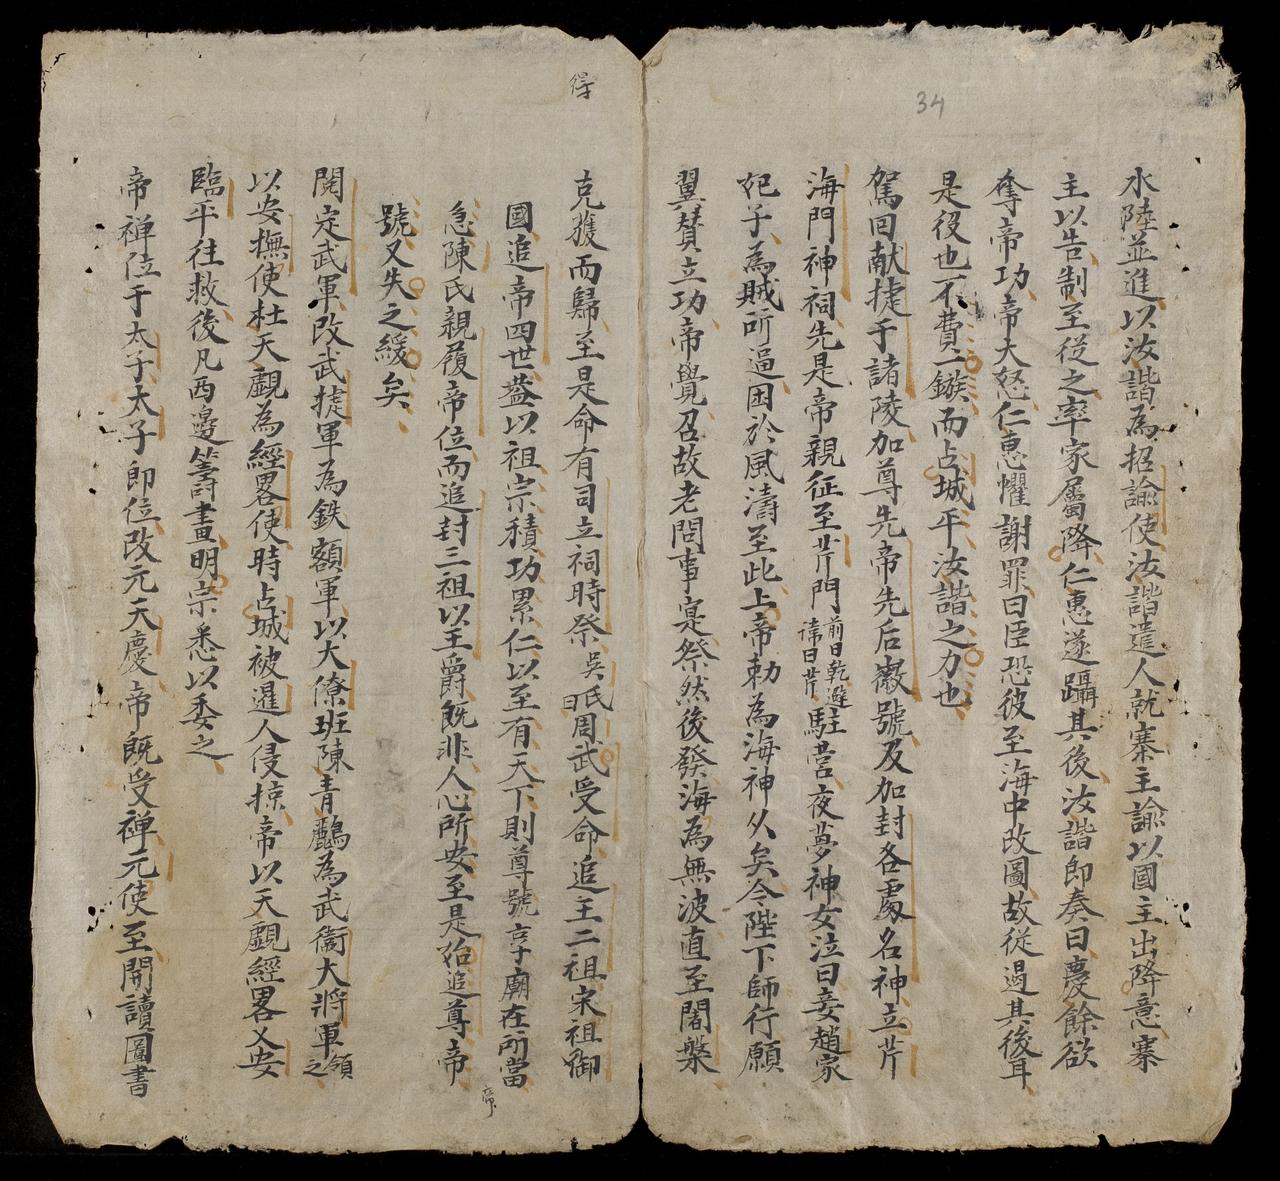 34
水陸並進以汝諧為招諭使汝諧遣人就寨主諭以國主出降意寨
主以告制至從之率家屬降仁惠遂躡其後汝諧即奏曰慶餘欲
奪帝功帝大怒仁惠懼謝罪曰臣恐彼至海中改圖故從過其後耳
是役也不費一鏃而占城平汝諧之力也
駕回献捷于諸陵加尊先帝先后徽號及加封各處名神立芹
海門神祠先是帝親征至芹門前日乾避諱曰芹駐营夜夢神女泣曰妾趙家
妃子為賊所逼困於風濤至此上帝勅為海神久矣今陛下師行願
翼賛立功帝覺召故老問事寔祭然後發海為無波直至闍槃
得
克獲而歸至是命有司立祠時祭吳氏曰周武受命追王二祖宋祖御
國追帝四世盖以祖宗積功累仁以至有天下則尊號享廟在所當
急陳氏親履帝位而追封三祖以王爵旣非人心所安至是始追尊帝
帝
號又失之緩矣
閱定武軍改武捷軍為鉄額軍以大僚班陳青鸝為武衞大將軍領之
以安撫使杜天覻為經畧使時占城被暹人侵掠帝以天覻經畧乂安
臨平往救後凡西邊籌畫明宗悉以委之
帝禅位于太子太子即位改元天慶帝旣受禅元使至開讀圖書